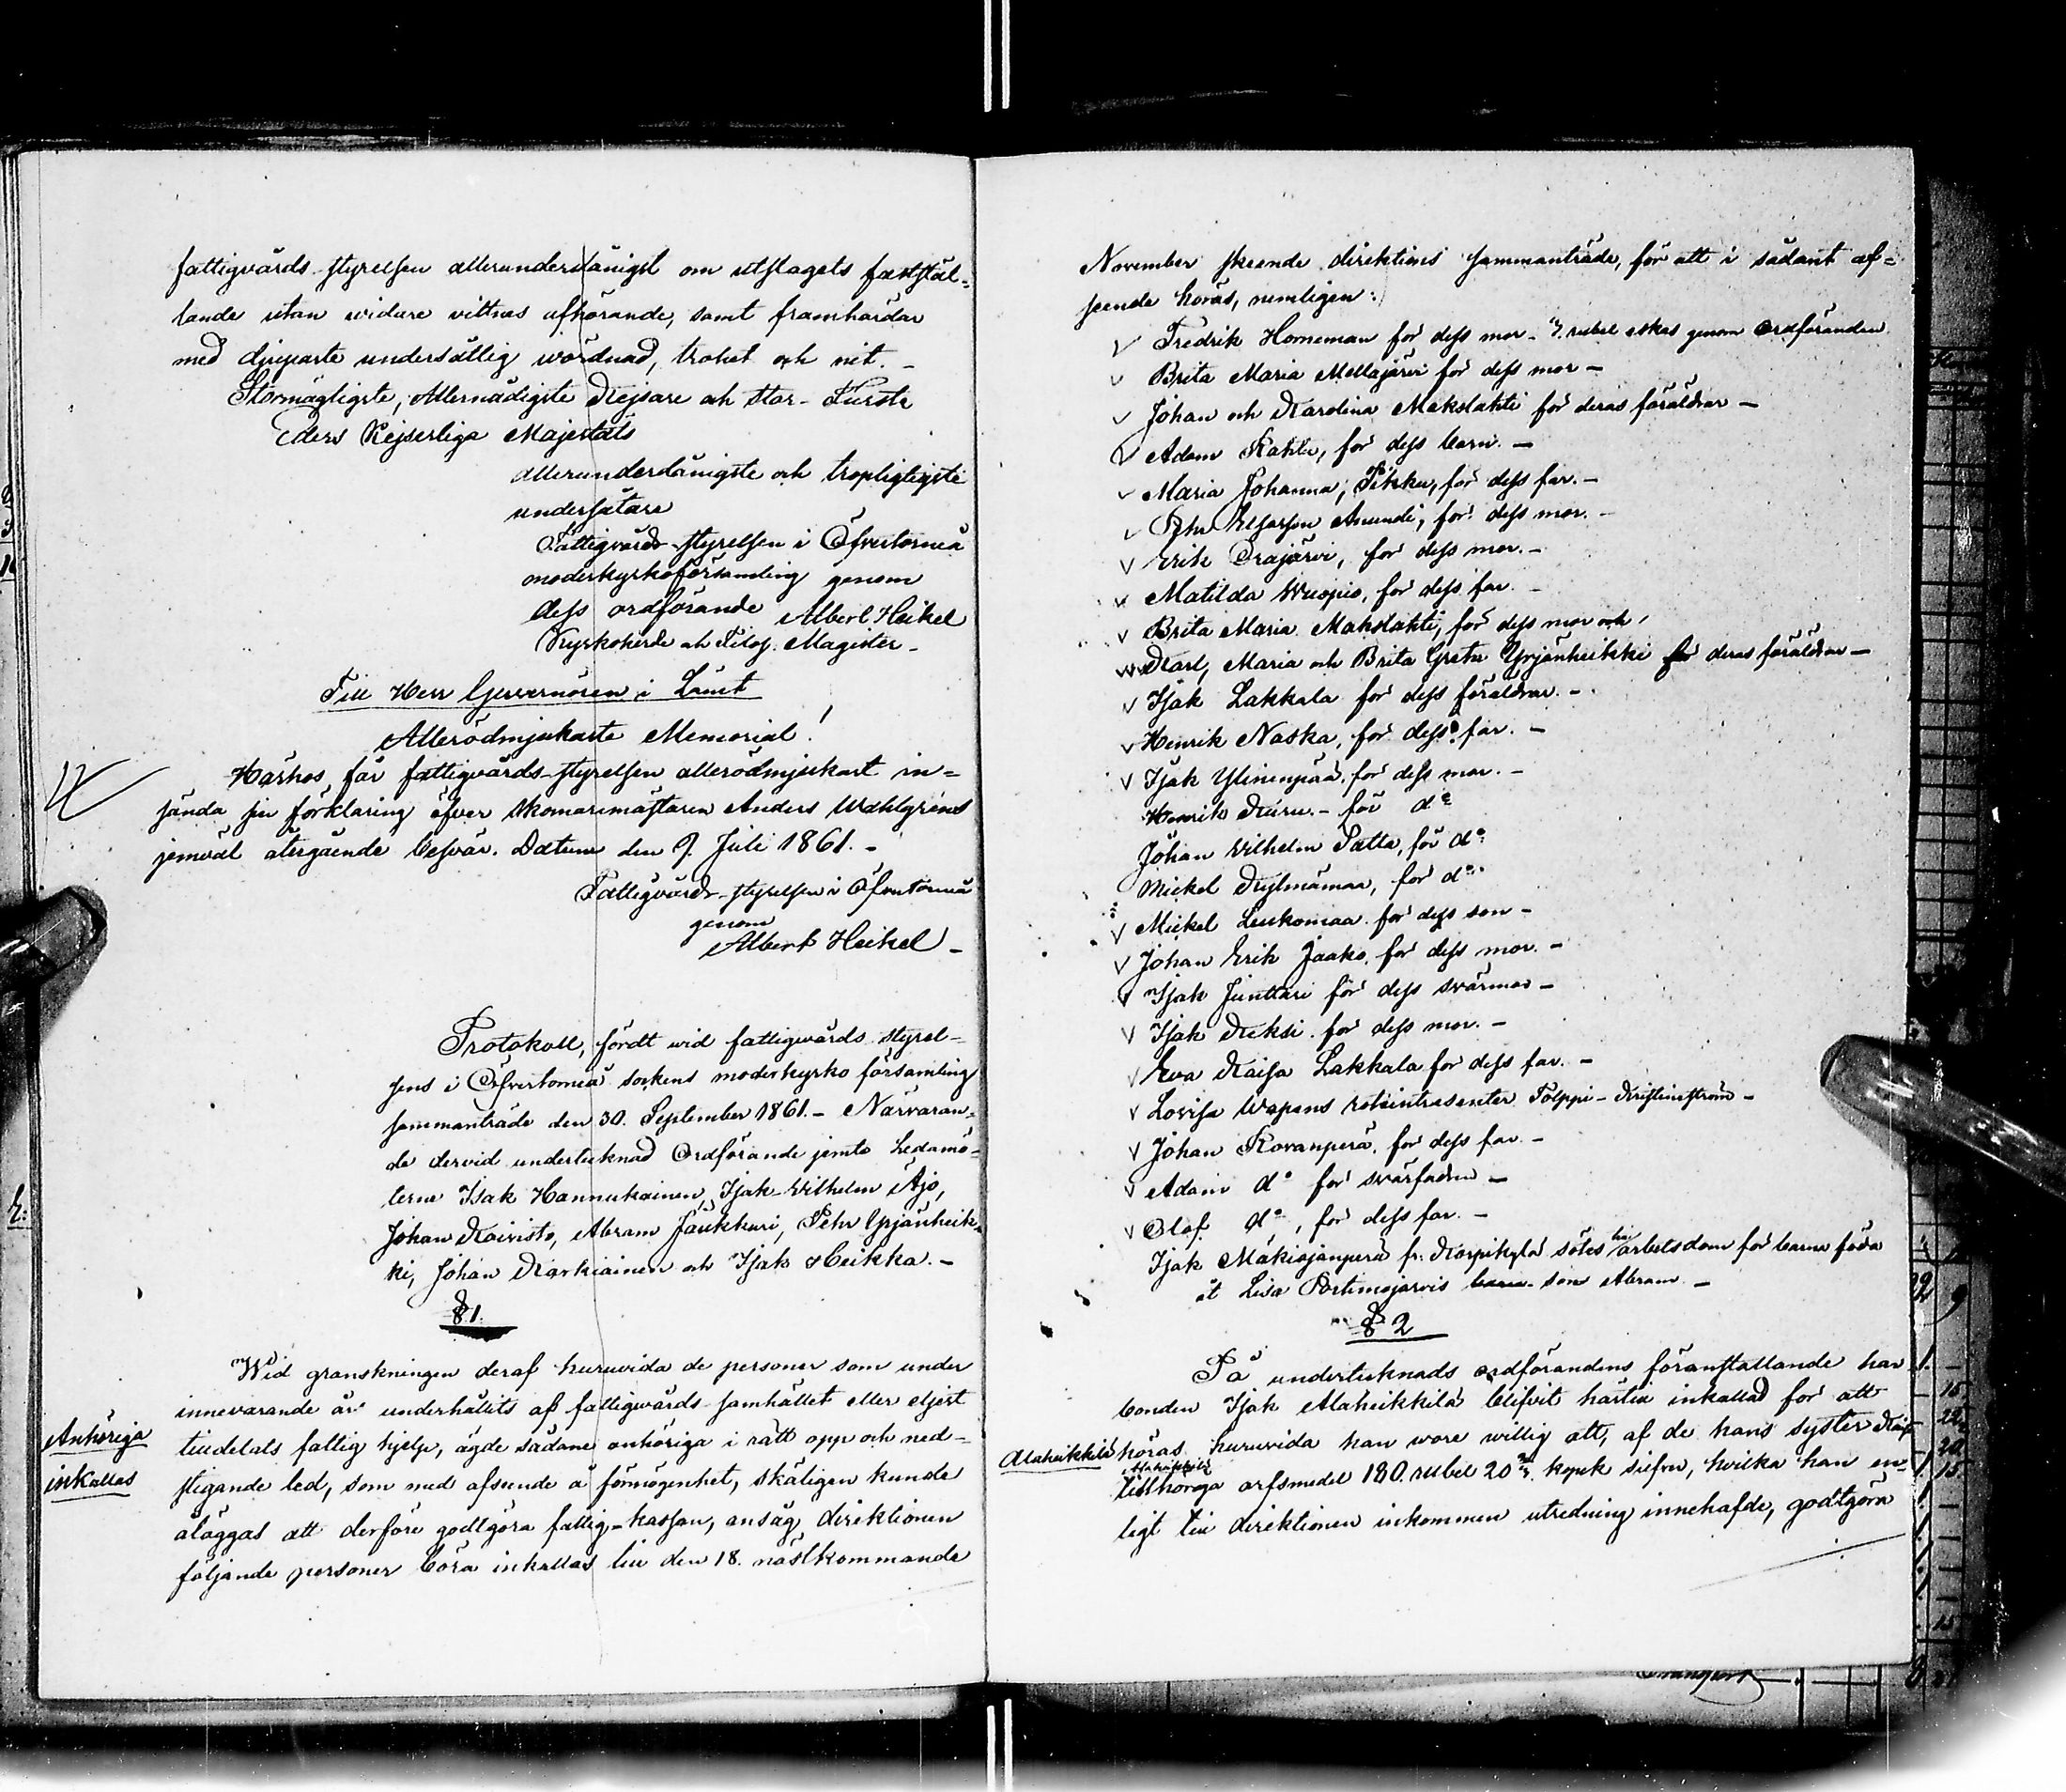 fattigvårds-styrelsen allerunderdånigst om utslagets fastställ-
lande utan widare vittnes afhörande, samt framhärdar
med djupaste undersåtlig wördnad, trohet och nit. -
Stormägtigste, Allernådigste Kejsare och Stor-Furste
Eders Kejserliga Majestäts
allerunderdånigste och tropligtigste
undersåtare
Fattigvårds-styrelsen i Öfvertorneå
moderkyrkoförsamling genom
dess ordförande Albert Heikel
Kyrkoherde och Filos. Magister -
Till Herr Guvernören i Länet
Allerödmjukaste Memorial!
Härhos får fattigvårds-styrelsen allerödmjukast in-
sända sin förklaring öfver skomarimästaren Anders Wahlgréns
jemväl återgående besvär. Datum den 9. Juli 1861. -
Fattigvårds-styrelsen i Öfvertorneå
genom
Albert Heikel -
Protokoll, fördt wid fattigwårds styrel-
sens i Öfvertorneå sockens moderkyrko församling
sammanträde den 30. September 1861. - Närvaran-
de dervid undertecknad Ordförande jemte Ledamö-
terne Isak Hannukainen, Isak Wilhelm Äjö,
Johan Koivisto, Abram Jaukkuri, Pehr Yrjänheik-
ki, Johan Karkiainen och Isak Heikka. -
§ 1.
Wid granskningen deraf huruvida de personer som under
innevarande år underhållits af fattigwårds-samhället eller eljest
Anhöriga
inkallas
tilldelats fattig hjelp, ägde sådane anhöriga i rätt opp och ned-
stigande led, som med afseende å förmögenhet, skäligen kunde
åläggas att derföre godtgöra fattig-kassan, ansåg direktionen
följande personer böra inkallas till den 18. nästkommande
November skeende direktions sammanträde, för att i sådant af-
seende höras, nemligen:
V Fredrik Horneman för dess mor - rubel eskas genom Ordföranden
V Brita Maria Mellajärvi för dess mor -
V Johan och Karolina Makslahti för deras föräldrar -
V Adam Kahlu, för dess barn. -
V Maria Johanna, Pikku, för dess far. -
V Pehr Elfsson Anundi, för dess mor. -
V Erik Orajärvi, för dess mor. -
V Matilda Wuopio, för dess far. -
V Brita Maria Makslahti, för dess mor och
VVV Karl, Maria och Brita Greta Yrjänheikki för deras föräldrar -
V Isak Lakkala för dess föräldrar. -
V Henrik Naska, för dess far. -
V Isak Ylinenpää, för dess mor. -
Henrik Kuru. - för do
Johan Wilhelm Patta, för do
Mickel Kylmämaa, för do
V Mickel Leukomaa för dess son -
V Johan Erik Jaako, för dess mor. -
V Isak Junttari för dess svärmor -
V Isak Keksi för dess mor. -
V Eva Kaisa Lakkala för dess far. -
V Lovisa Wapens roteintresenter Tolppi - Kristineström -
V Johan Kovanperä, för dess far. -
V Adam do för svärfadren -
V Olof do, för dess far. -
Isak Mäkisjanperä fr. Karpikylä sötes arbetsdom för barna föda
åt Lisa Portimojärvis barn son Abram. -
§ 2
På undertecknads ordförandens föranstaltande har
bonden Isak Alaheikkilä blifvit härtill inkallad för att
Alaheikkilä
höras huruvida han wore willig att, af de hans syster Kaisa
Alaheikkilä
tillhöriga arfsmedel 180. rubel 20 kopek silfver, hvilka han en-
ligt till direktionen inkommen utredning innehafde, godtgöra
Transport